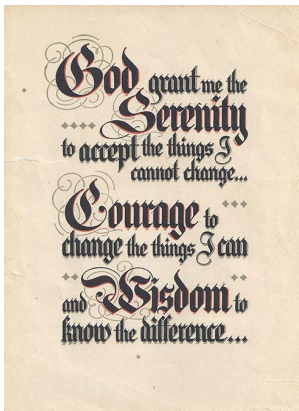 God grant me the
Serenity
to accept the things I
cannot change...
Courage to
change the things I can
and Wisdom to
know the difference...